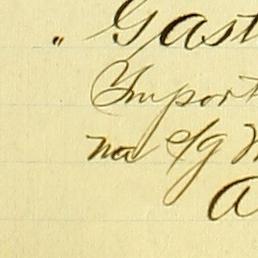 " Gast
Import
na c/g